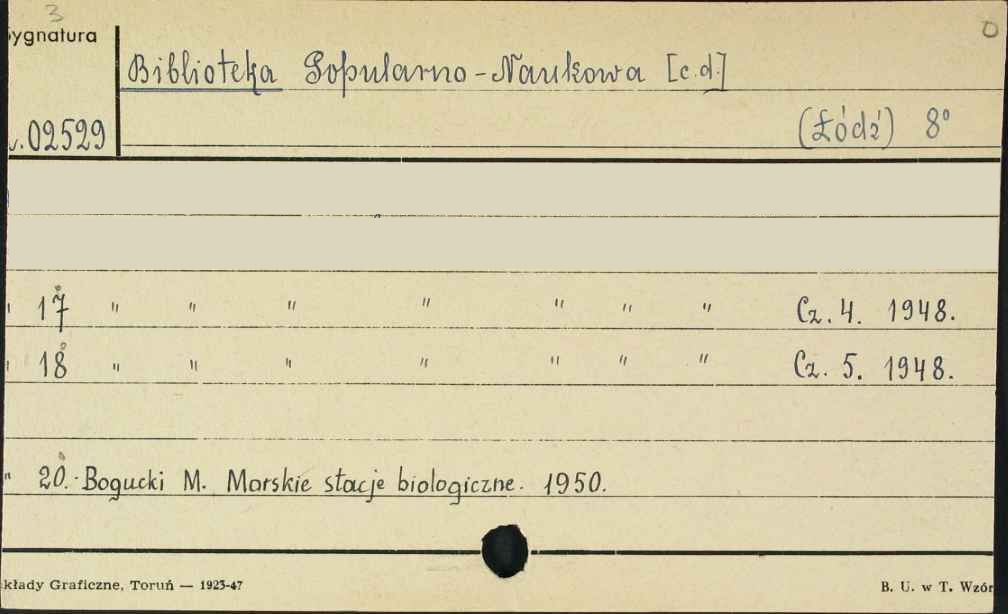 3
ygnatura
Biblioteka Popularno-Naukowa [c.d.]
02529
(Łódź) 8°
" 17 " " " " " " " Cz. 4. 1948.
" 18 " " " " " " " Cz. 5. 1948.
" 20. Bogucki M. Morskie stacje biologiczne. 1950.
kłady Graficzne, Toruń — 1923-47
B. U. w T. Wzór